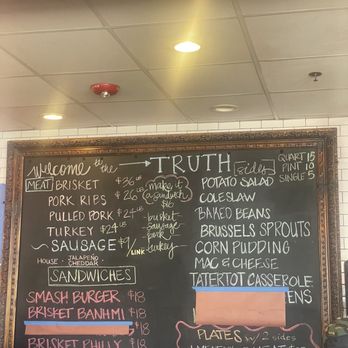 Welcome to the → TRUTH
MEAT
BRISKET $36 LB
PORK RIBS $26 LB
PULLED PORK $24 LB
TURKEY $24 LB
~ SAUSAGE $7/LINK
HOUSE JALAPEÑO CHEDDAR
make it a sandwich
brisket
sausage
pork
turkey
SANDWICHES
SMASH BURGER $18
BRISKET BANH MI $18
$18
BRISKET PHILLY $18
Sides
QUART 15
PINT 10
SINGLE 5
POTATO SALAD
COLESLAW
BAKED BEANS
BRUSSELS SPROUTS
CORN PUDDING
MAC & CHEESE
TATERTOT CASSEROLE
ENS
PLATES w/ 2 sides